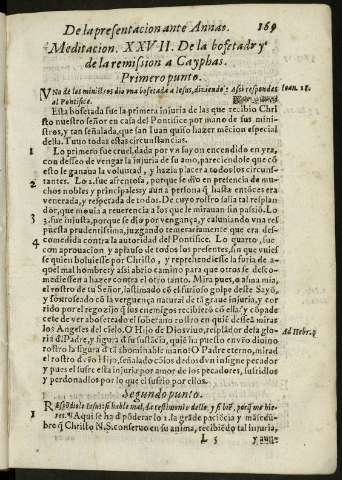 De la presentacion ante Annas. 169
Meditacion. XXVII. De la bofetada y
de la remission a Cayphas.
Primero punto.
VNo de los ministros dio vna bofetada a Iesus, diziendo: Assi respondes Ioan. 18.
al Pontifice.
Esta bofetada fue la primera injuria de las que recibio Chri
sto nuestro señor en casa del Pontifice por mano de sus mini-
stros, y tan señalada, que san Iuan quiso hazer mēcion especial
della. Tuuo todas estas circunstancias.
1 Lo primero fue cruel, dada por vn sayon encendido en yra,
con desseo de vengar la injuria de su amo, pareciendole que cō
esto le ganaua la voluntad, y hazia placer a todos los circun-
2 stantes. Lo 2. fue afrentosa, porque se dio en presencia de mu-
chos nobles y principales y aun a persona q̄ hasta entōces era
venerada, y respetada de todos. De cuyo rostro salia tal resplan-
dor, que mouia a reuerencia a los que le mirauan sin passiō. Lo
3 3. fue injusta, porque se dio por vengança, y calumniando vna res
puesta prudentissima, juzgando temerariamente que era des-
4 comedida contra la autoridad del Pontifice. Lo quarto, fue
con aprouacion y aplauso de todos los presentes, sin que vuies
se quien boluiesse por Christo, y reprehendiesse la furia de a-
quel mal hombre y assi abrio camino para que otros se desco-
mediessen a hazer contra el otro tanto. Mira pues, o alma mia,
el rostro de tu Señor, lastimado cō el furioso golpe deste Sayō,
y sonroseado cō la verguença natural de tā graue injuria, y cor
rido por el regozijo q̄ sus enemigos recibierō cō ella: y cōpade
cete de ver abofeteado el soberano rostro en quiē desseā mirar
los Angeles del cielo. O Hijo de Dios viuo, resplādor de la glo- Ad Hebr. 1.
ria d̄ Padre, y figura d̄ su sustācia, quiē ha puesto en vr̄o diuino
rostro la figura d̄ tā abominable mano? O Padre eterno, mirad
el rostro d̄ vr̄o Hijo, señalado cō los dedos d̄ vn insigne pecador
y pues el sufre esta injuria por amor de los pecadores, sufridlos
y perdonadlos por lo que el sufrio por ellos.
Segundo punto.
1 REspōdiole Iesus: si hable mal, da testimonio dello, y si biē, porq̄ me hie-
res. Aqui se ha d̄ pōderar lo 1. la grāde paciēcia y māsedū-
bre q̄ Christo N.S. conseruo en su anima, recibiēdo tal injuria,
L 5 y aun